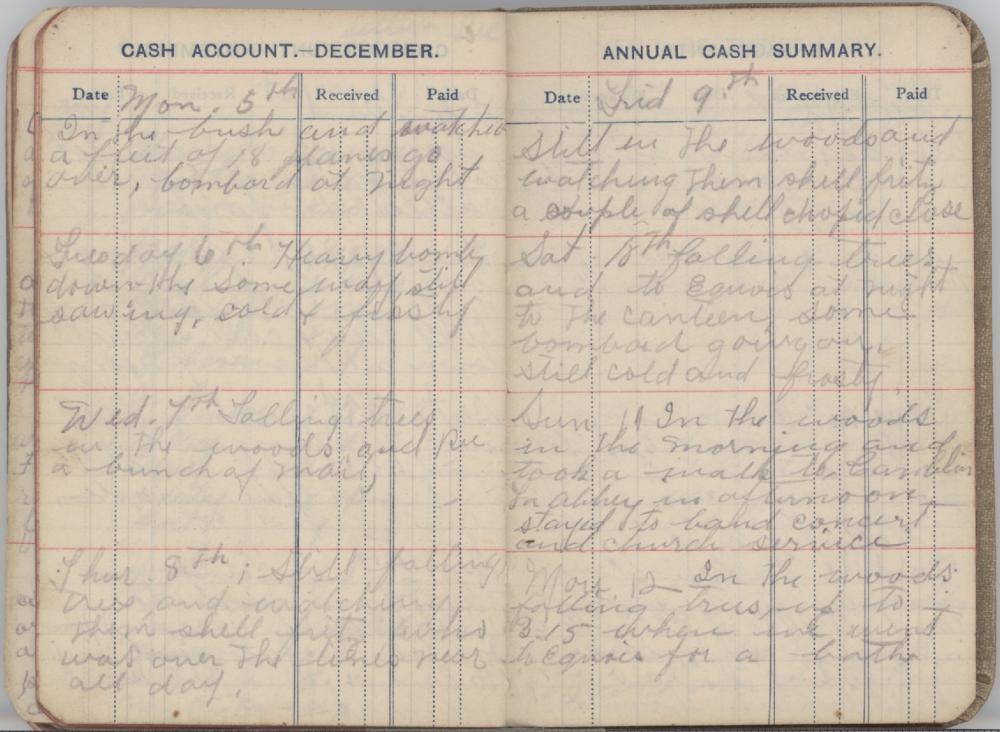 CASH ACCOUNT.—DECEMBER.
Date Received Paid
Mon. 5th
In the bush and watched
a fleet of 18 planes go
over, bombard at night
Tuesday 6th. Heavy bomb
down the some way still
sawing, cold & frosty
Wed. 7th Falling trees
in the woods, and
a bunch of mail,
Thur. 8th; Still falling
trees and watching
them shell fritz who
was over the lines near
all day.
ANNUAL CASH SUMMARY.
Date Received Paid
Frid 9th
Still in the woods and
watching them shell fritz
a couple of shell choped close
Sat 10th falling trees
and to at night
to the canteen, some
bombard going on,
still cold and frosty,
Sun 11 In the woods
in the morning and
took a walk to
In abbey in afternoon
stayed to band concert
and church service
Mon 12 In the woods
falling trees, up to
3.15 when we went
to for a bath